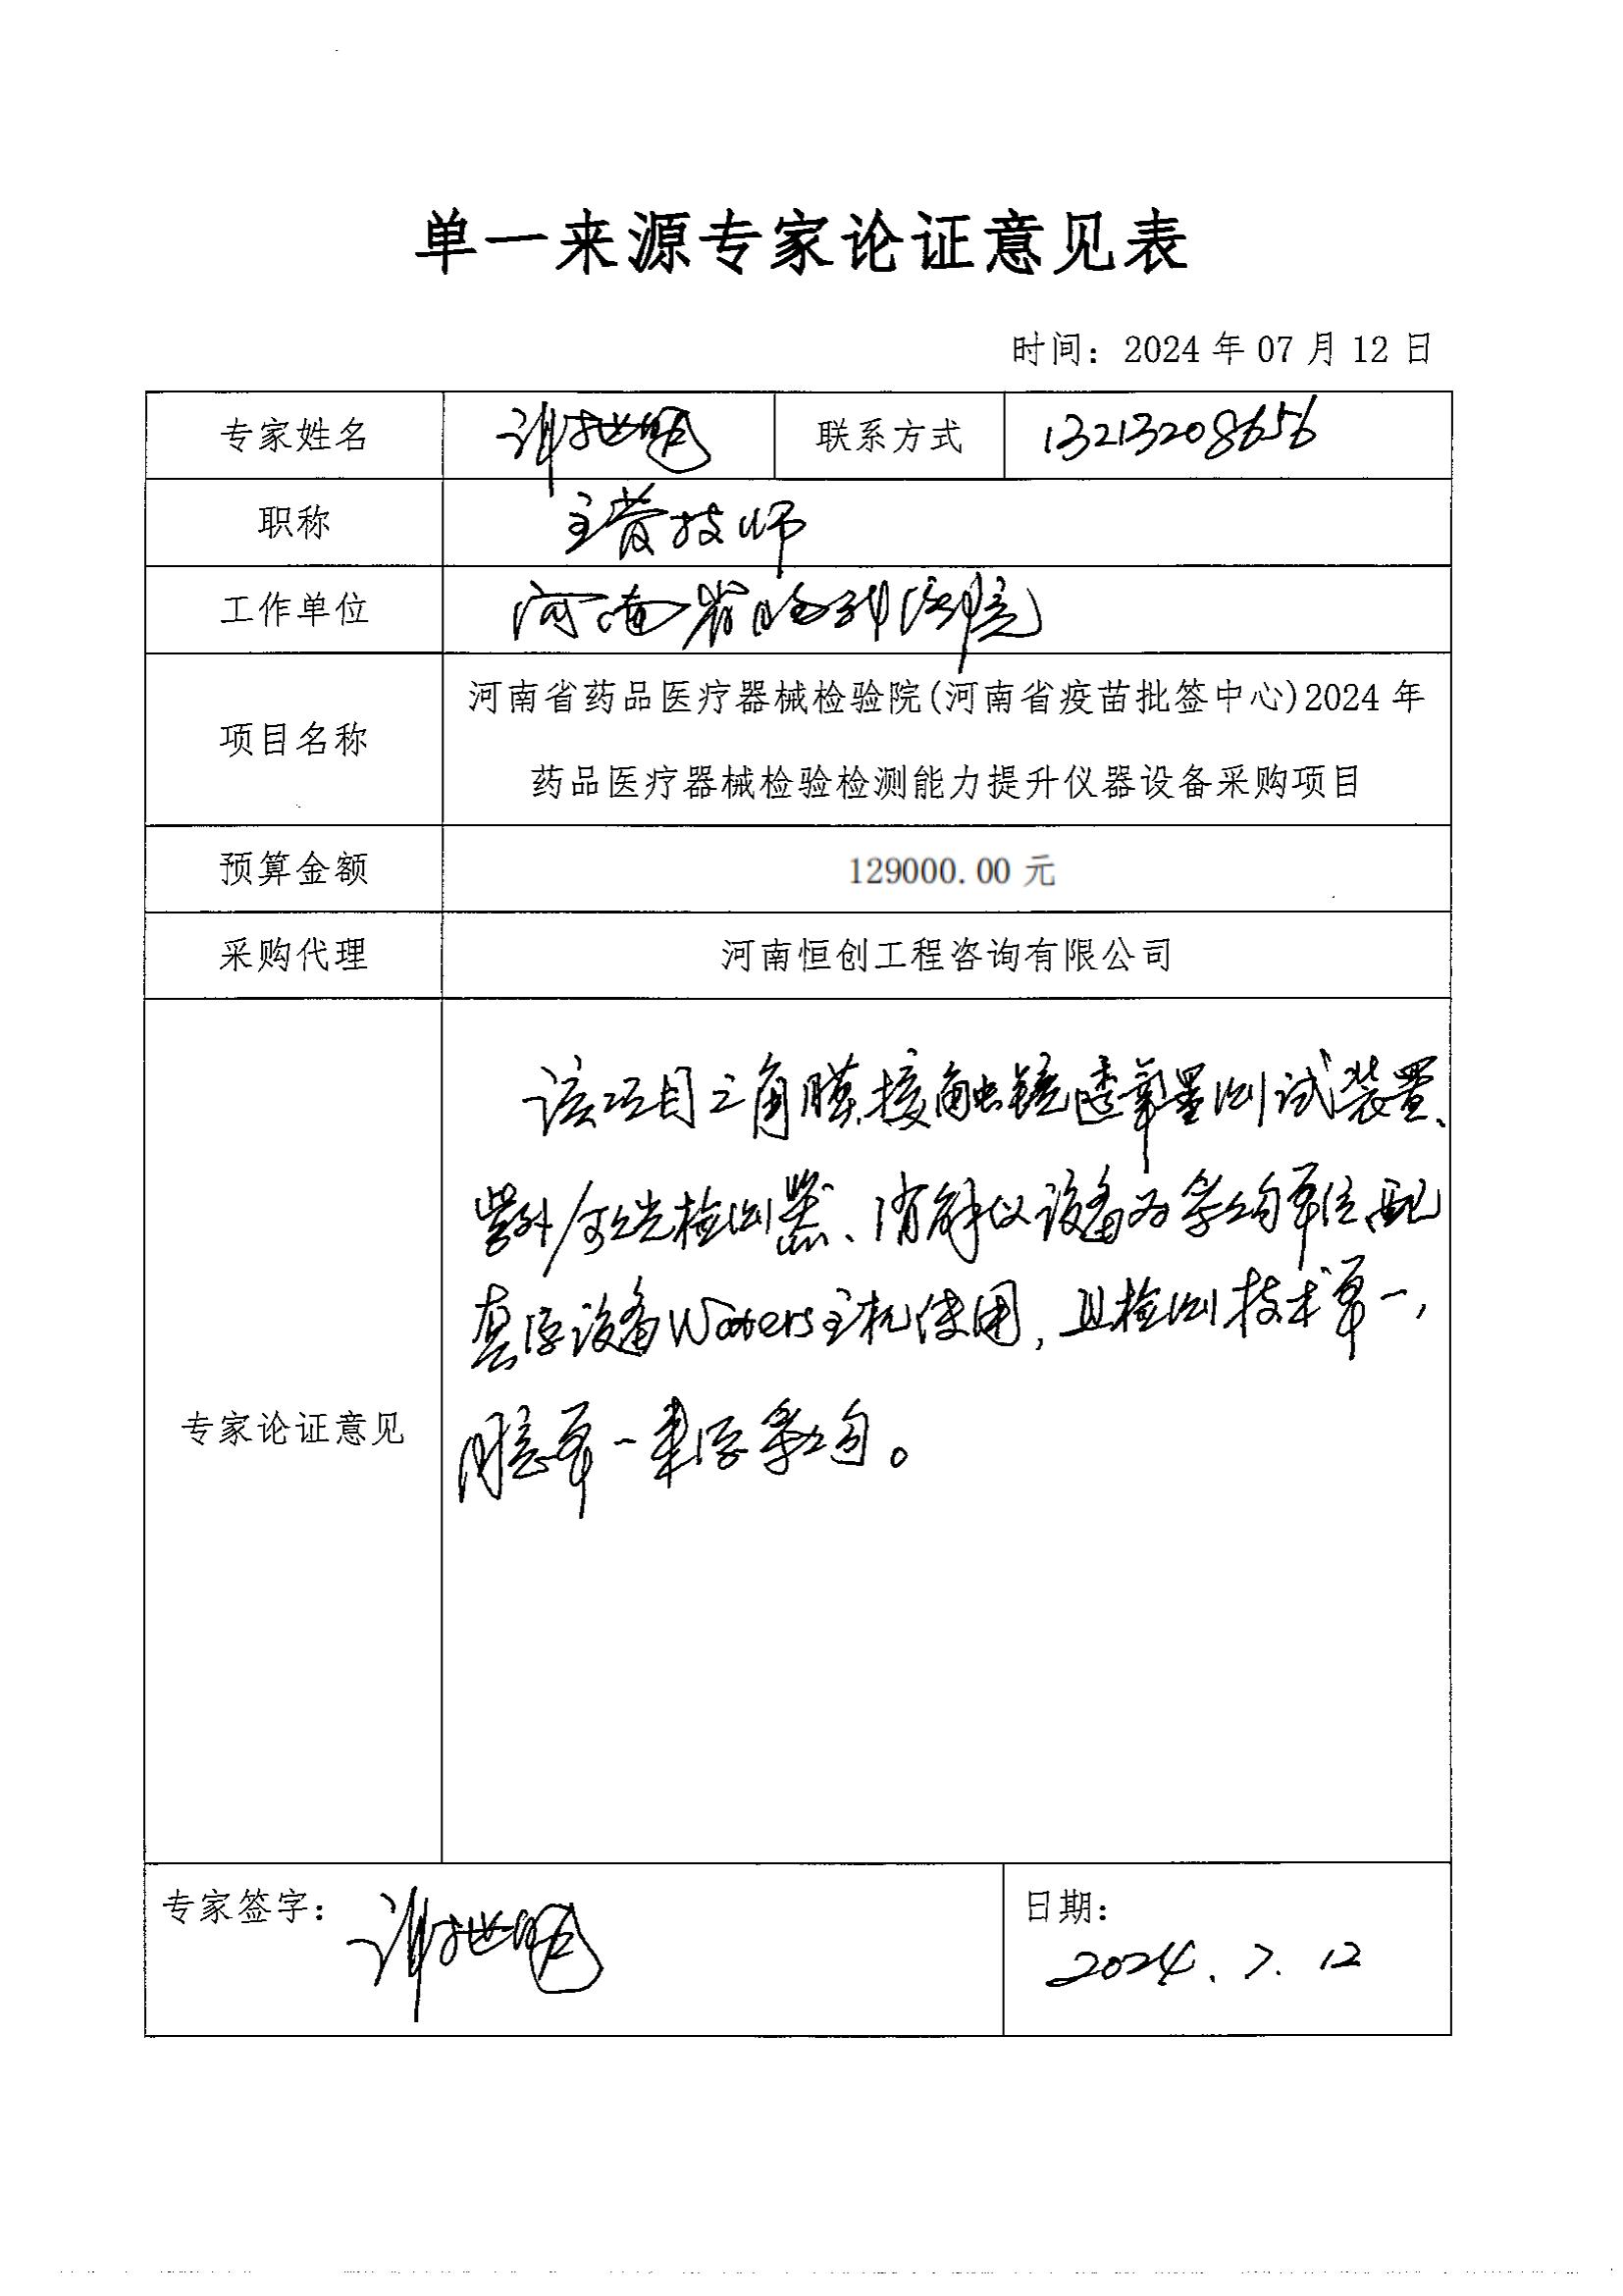 单一来源专家论证意见表
时间：2024 年 07 月 12 日
专家姓名
联系方式 13213208656
职称 主管技师
工作单位 河南省胸科医院
项目名称 河南省药品医疗器械检验院(河南省疫苗批签中心)2024 年
药品医疗器械检验检测能力提升仪器设备采购项目
预算金额 129000.00 元
采购代理 河南恒创工程咨询有限公司
专家论证意见
该项目之角膜接触镜透氧量测试装置、
紫外/荧光检测器、消解仪设备为采购单位配
套原设备Waters主机使用，且检测技术单一，
同意单一来源采购。
专家签字：
日期：
2024.7.12